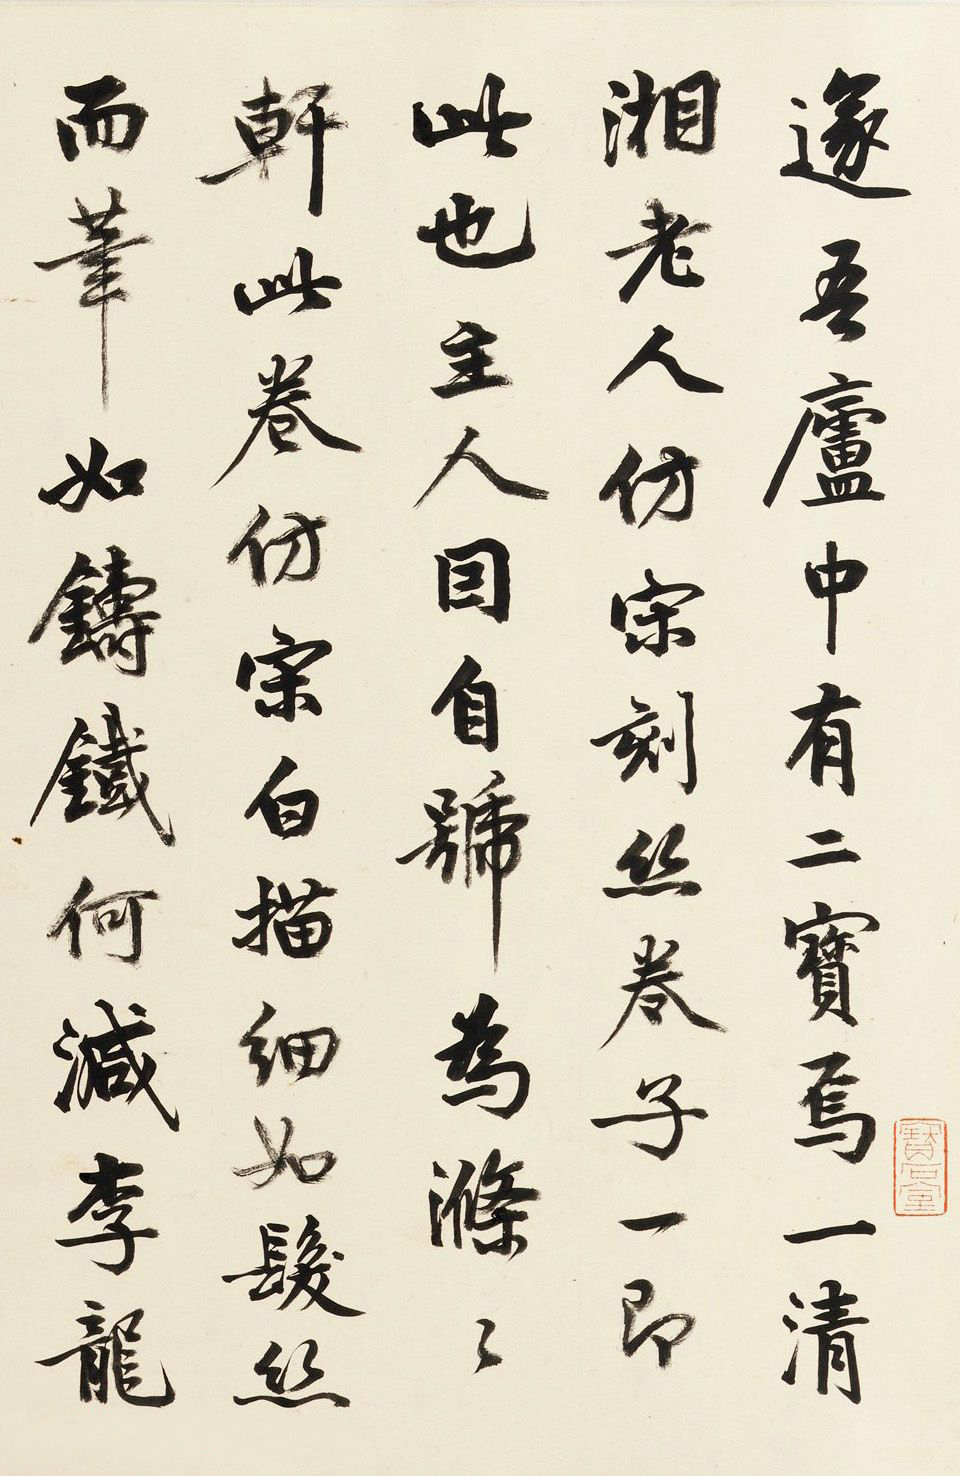 遂吾廬中有二寶焉一清
湘老人仿宋刻丝卷子一即
此也主人因自號為滌〻
軒此卷仿宋白描細如髮丝
而筆如鑄鐵何減李龍
寶石室